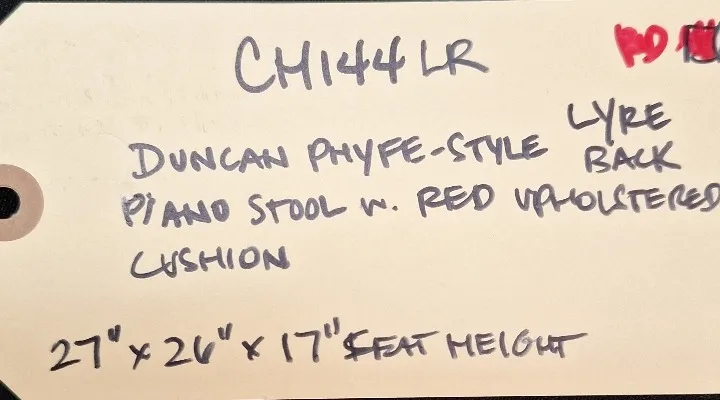 CH144LR
DUNCAN PHYFE-STYLE LYRE BACK
PIANO STOOL W. RED UPHOLSTERED
CUSHION
27" x 26" x 17" SEAT HEIGHT